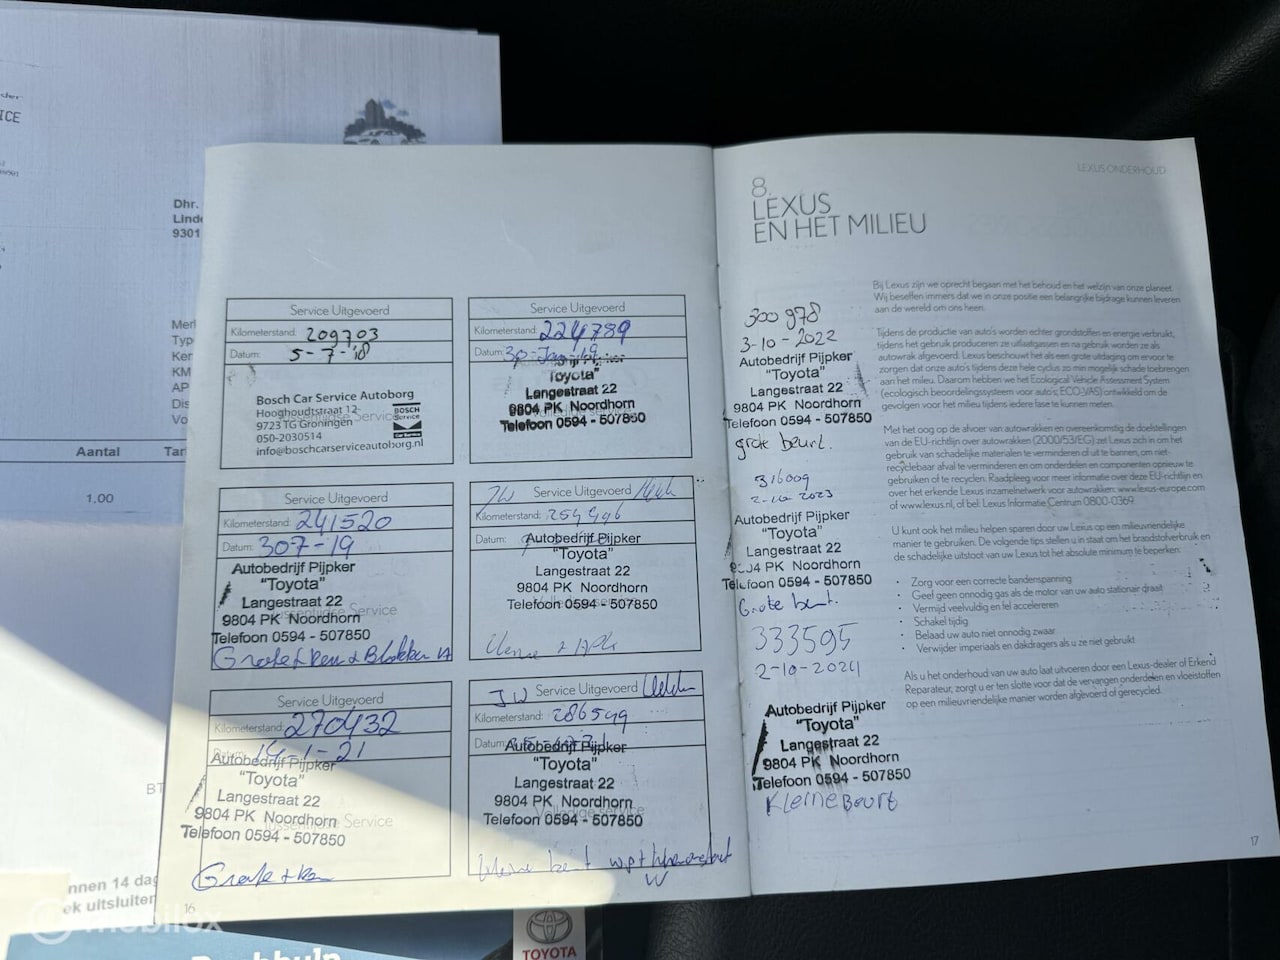 ICE
Dhr.
Linde
9301
Merk
Type
Ken
KM
AP
Dis
Vo
Aantal
Tari
1,00
BT
nnen 14 dag
ek uitsluiten
Service Uitgevoerd
Kilometerstand: 209703
Datum: 5-7-'18
Bosch Car Service Autoborg
Hooghoudtstraat 12
9723 TG Groningen
050-2030514
info@boschcarserviceautoborg.nl
BOSCH
Service
Car Service
Service Uitgevoerd
Kilometerstand: 224789
Datum: 30-Jan-19
"Toyota"
Langestraat 22
9804 PK Noordhorn
Telefoon 0594 - 507850
Service Uitgevoerd
Kilometerstand: 241520
Datum: 307-19
Autobedrijf Pijpker
"Toyota"
Langestraat 22
9804 PK Noordhorn
Telefoon 0594 - 507850
Service Uitgevoerd
Kilometerstand: 254446
Datum:
Autobedrijf Pijpker
"Toyota"
Langestraat 22
9804 PK Noordhorn
Telefoon 0594 - 507850
Service Uitgevoerd
Kilometerstand: 270432
Datum: 14-1-21
Autobedrijf Pijpker
"Toyota"
Langestraat 22
9804 PK Noordhorn
Telefoon 0594 - 507850
JW Service Uitgevoerd
Kilometerstand: 286599
Datum:
Autobedrijf Pijpker
"Toyota"
Langestraat 22
9804 PK Noordhorn
Telefoon 0594 - 507850
16
LEXUS ONDERHOUD
8.
LEXUS
EN HET MILIEU
300978
3-10-2022
Autobedrijf Pijpker
"Toyota"
Langestraat 22
9804 PK Noordhorn
Telefoon 0594 - 507850
grote beurt.
316009
2-10-2023
Autobedrijf Pijpker
"Toyota"
Langestraat 22
9804 PK Noordhorn
Telefoon 0594 - 507850
Grote beurt.
333595
2-10-2024
Autobedrijf Pijpker
"Toyota"
Langestraat 22
9804 PK Noordhorn
Telefoon 0594 - 507850
Kleine Beurt
Bij Lexus zijn we oprecht begaan met het behoud en het welzijn van onze planeet.
Wij beseffen immers dat we in onze positie een belangrijke bijdrage kunnen leveren
aan de wereld om ons heen.
Tijdens de productie van auto's worden echter grondstoffen en energie verbruikt,
tijdens het gebruik produceren ze uitlaatgassen en na gebruik worden ze als
autowrak afgevoerd. Lexus beschouwt het als een grote uitdaging om ervoor te
zorgen dat auto's tijdens deze hele cyclus zo min mogelijk schade toebrengen
aan het milieu. Daarom hebben we het Ecological Vehicle Assessment System
(ecologisch beoordelingssysteem voor auto's, ECO-VAS) ontwikkeld om de
gevolgen voor het milieu tijdens iedere fase te kunnen meten.
Met het oog op de afvoer van autowrakken en overeenkomstig de doelstellingen
van de EU-richtlijn over autowrakken (2000/53/EG) zet Lexus zich in om het
gebruik van schadelijke materialen te verminderen of uit te bannen, om niet-
recyclebaar afval te verminderen en om onderdelen en componenten opnieuw te
gebruiken of te recyclen. Raadpleeg voor meer informatie over deze EU-richtlijn en
over het erkende Lexus inzamelnetwerk voor autowrakken: www.lexus-europe.com
of www.lexus.nl, of bel: Lexus Informatie Centrum 0800-0369.
U kunt ook het milieu helpen sparen door uw Lexus op een milieuvriendelijke
manier te gebruiken. De volgende tips stellen u in staat om het brandstofverbruik en
de schadelijke uitstoot van uw Lexus tot het absolute minimum te beperken:
• Zorg voor een correcte bandenspanning
• Geef geen onnodig gas als de motor van uw auto stationair draait
• Vermijd veelvuldig en fel accelereren
• Schakel tijdig
• Belaad uw auto niet onnodig zwaar
• Verwijder imperiaals en dakdragers als u ze niet gebruikt
Als u het onderhoud van uw auto laat uitvoeren door een Lexus-dealer of Erkend
Reparateur, zorgt u er ten slotte voor dat de vervangen onderdelen en vloeistoffen
op een milieuvriendelijke manier worden afgevoerd of gerecycled.
17
mobilox
TOYOTA